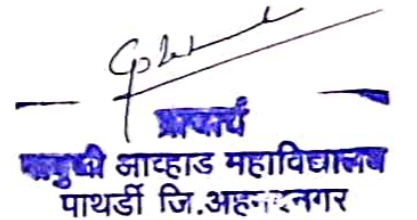 प्राचार्य
बाबुजी आव्हाड महाविद्यालय
पाथर्डी जि.अहमदनगर